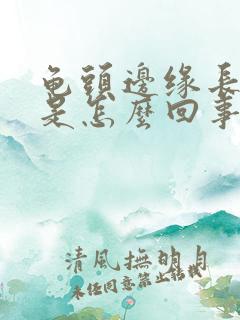 龟頭邊缘長
是怎麼回事
清風撫明月
未经同意禁止转载